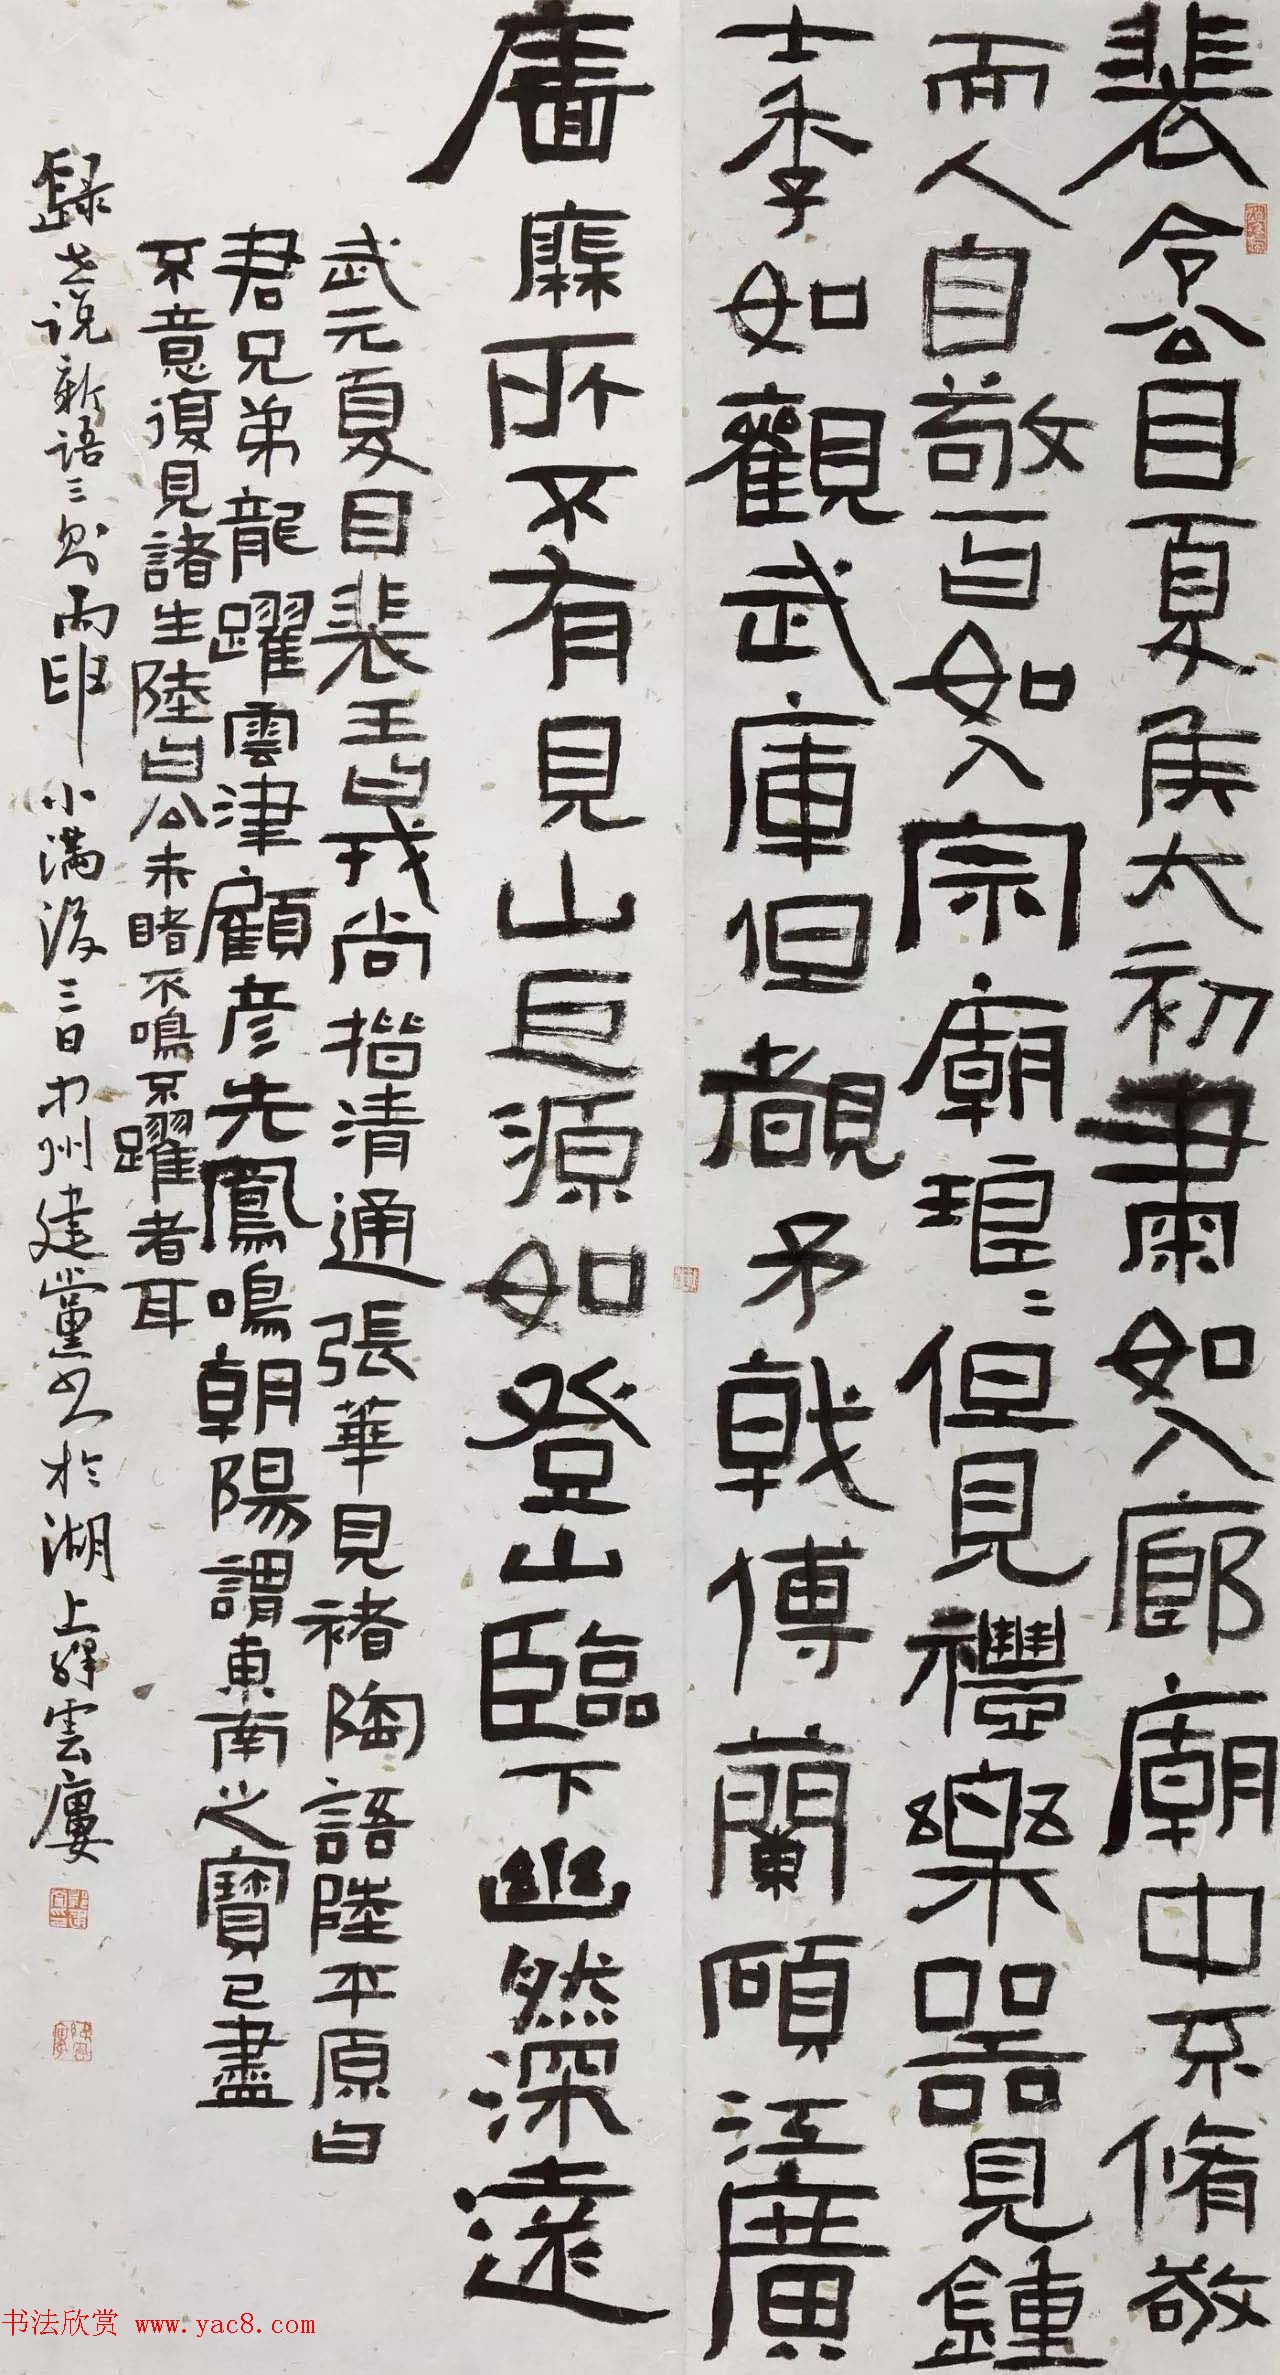 裴令公目夏侯太初肅肅如入廊廟中不脩敬
而人自敬一曰如入宗廟琅琅但見禮樂器見鍾
士季如觀武庫但覩矛戟傅蘭碩江廣
廧靡所不有見山巨源如登山臨下幽然深遠
武元夏目裴王曰戎尚揩清通張華見褚陶語陸平原曰
君兄弟龍躍雲津顧彥先鳳鳴朝陽謂東南之寶已盡
不意復見諸生陸曰公未睹不鳴不躍者耳
錄世说新语三则丙申小满後三日中州建黨书於湖上
書法欣赏 www.yac8.com